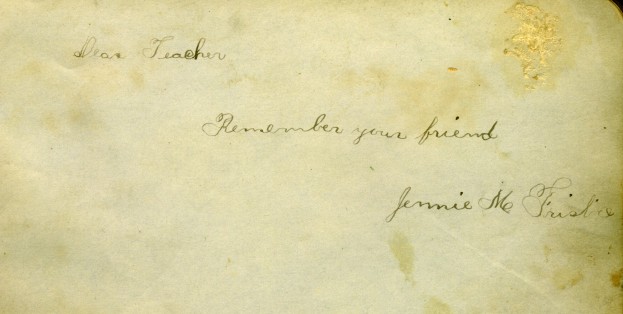 Dear Teacher
Remember your friend
Jennie M Frisbie